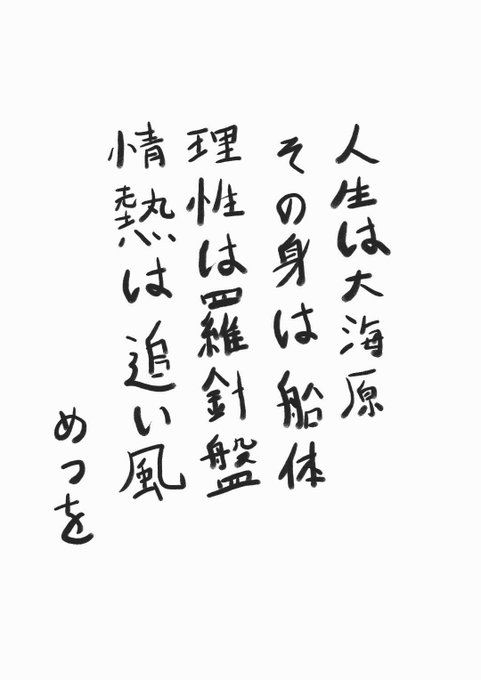 人生は大海原
その身は船体
理性は羅針盤
情熱は追い風
めつを